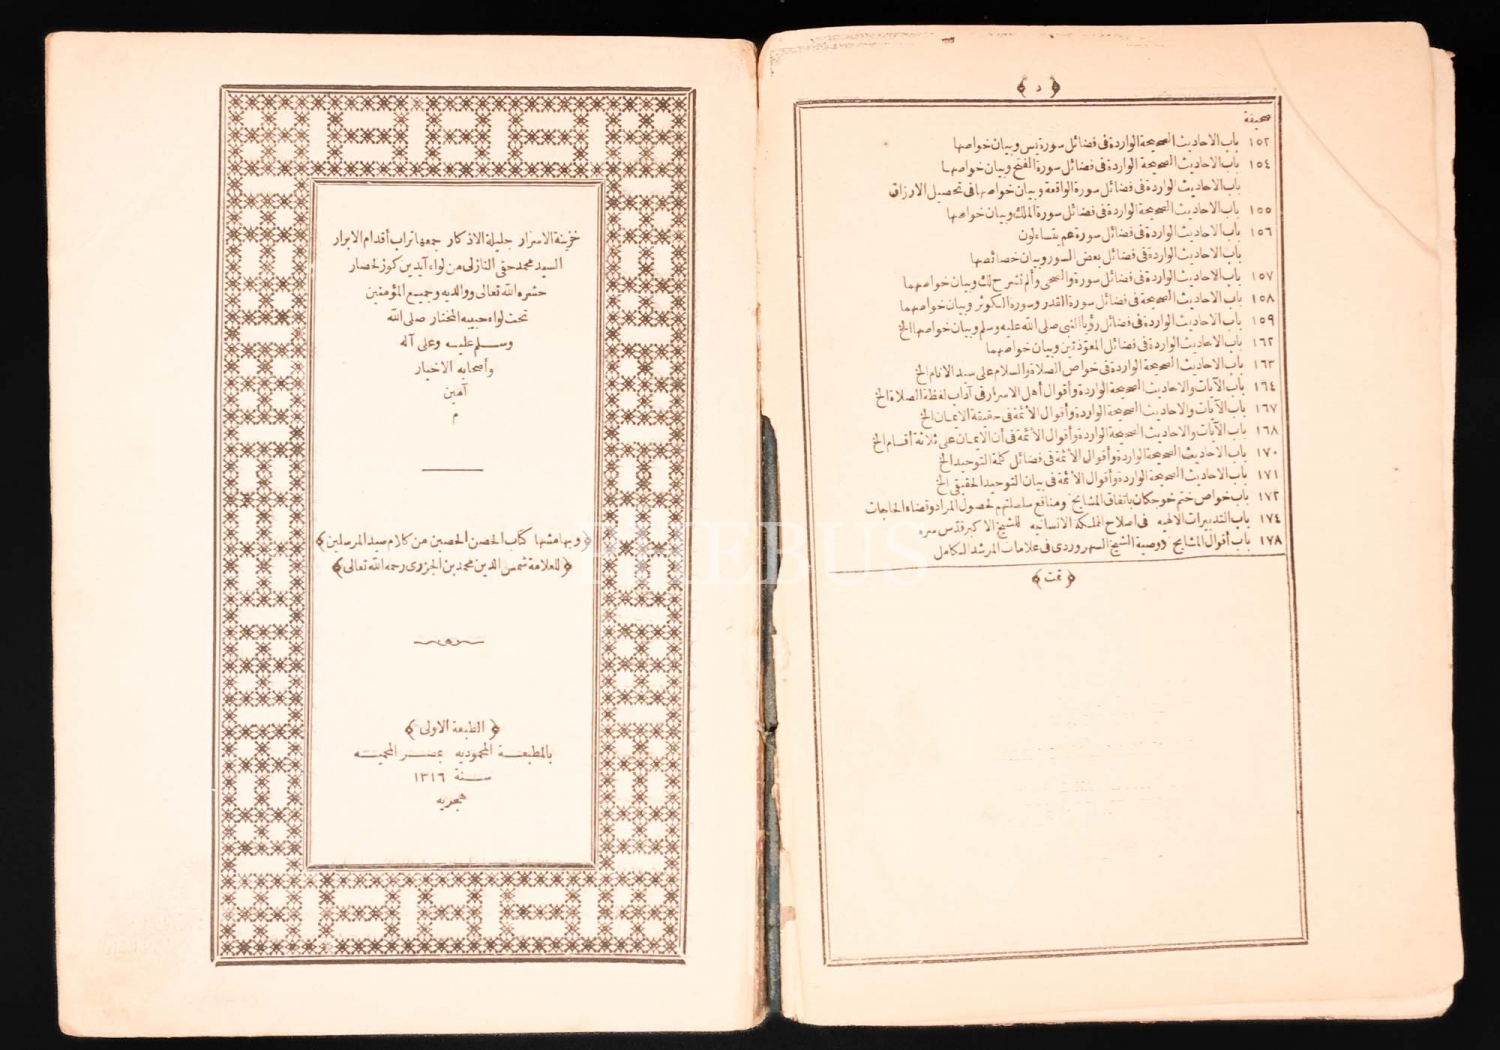 ﴿ د ﴾
صحيفة
١٥٢ باب الاحاديث الصحيحة الواردة فى فضائل سورة يس وبيان خواصها
١٥٤ باب الاحاديث الصحيحة الواردة فى فضائل سورة الفتح وبيان خواصها
باب الاحاديث الواردة فى فضائل سورة الواقعة وبيان خواصها فى تحصيل الارزاق
١٥٥ باب الاحاديث الصحيحة الواردة فى فضائل سورة الملك وبيان خواصها
١٥٦ باب الاحاديث الواردة فى فضائل سورة عم يتساءلون
باب الاحاديث الواردة فى فضائل بعض السور وبيان خصائصها
١٥٧ باب الاحاديث الواردة فى فضائل سورة والضحى وألم نشرح لك وبيان خواصهما
١٥٨ باب الاحاديث الصحيحة فى فضائل سورة القدر وسورة الكوثر وبيان خواصهما
١٥٩ باب الاحاديث الواردة فى فضائل رؤيا النبى صلى الله عليه وسلم وبيان خواصها الخ
١٦٢ باب الاحاديث الواردة فى فضائل المعوذتين وبيان خواصهما
١٦٣ باب الاحاديث الصحيحة الواردة فى خواص الصلاة والسلام على سيد الانام الخ
١٦٤ باب الآيات والاحاديث الصحيحة الواردة وأقوال أهل الاسرار فى آداب لفظة الصلاة الخ
١٦٧ باب الآيات والاحاديث الصحيحة الواردة وأقوال الأئمة فى حقيقة الايمان الخ
١٦٨ باب الآيات والاحاديث الصحيحة الواردة وأقوال الأئمة فى أن الايمان على ثلاثة أقسام الخ
١٧٠ باب الاحاديث الصحيحة الواردة وأقوال الأئمة فى فضائل كلمة التوحيد الخ
١٧١ باب الاحاديث الصحيحة الواردة وأقوال الأئمة فى بيان التوحيد الحقيقى الخ
١٧٢ باب خواص ختم خوجكان باتفاق المشايخ ومنافع سلسلتهم لحصول المراد وقضاء الحاجات
١٧٤ باب التدبيرات الالهيه فى اصلاح المملكة الانسانيه للشيخ الاكبر قدس سره
١٧٨ باب أقوال المشايخ ووصية الشيخ السهروردى فى علامات المرشد الكامل
﴿ تمت ﴾
خزينة الاسرار جليلة الاذكار جمعها تراب أقدام الابرار
السيد محمد حقى النازلى من لواء آيدين كوزلحصار
حشره الله تعالى ووالديه وجميع المؤمنين
تحت لواء حبيبه المختار صلى الله
وسلم عليه وعلى آله
وأصحابه الاخيار
آمين
م
﴿ وبهامشها كتاب الحصن الحصين من كلام سيد المرسلين ﴾
﴿ للعلامة شمس الدين محمد بن الجزرى رحمه الله تعالى ﴾
﴿ الطبعة الاولى ﴾
بالمطبعة المحموديه بمصر المحميه
سنة ١٣١٦
هجريه
PHEBUS